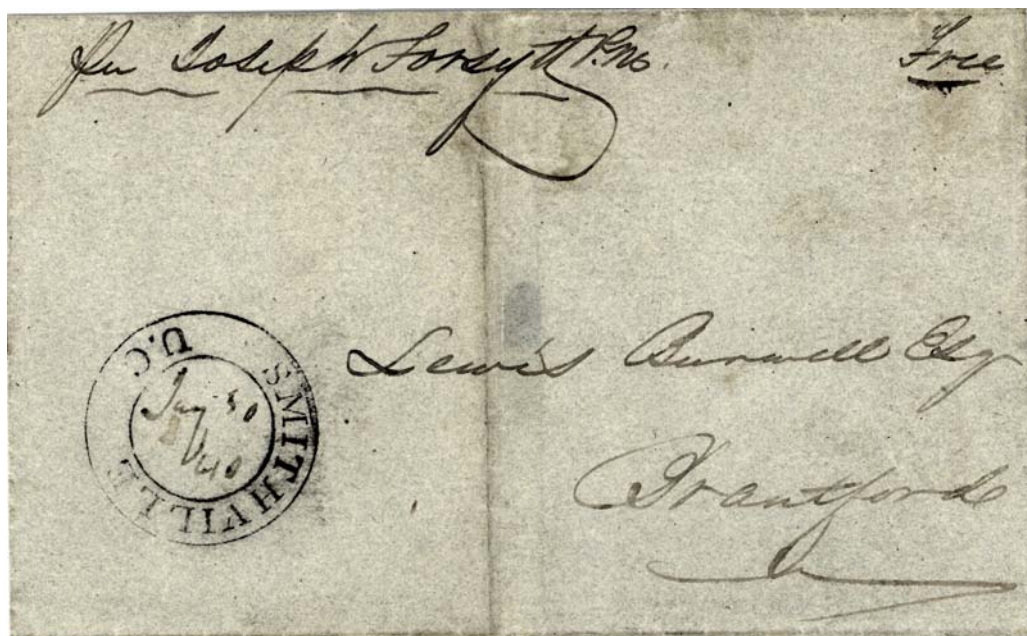 Per Joseph Forsyth P.M.
Free
SMITHVILLE U.C
Jany 30
1840
Lewis Burwell Esq
Brantford